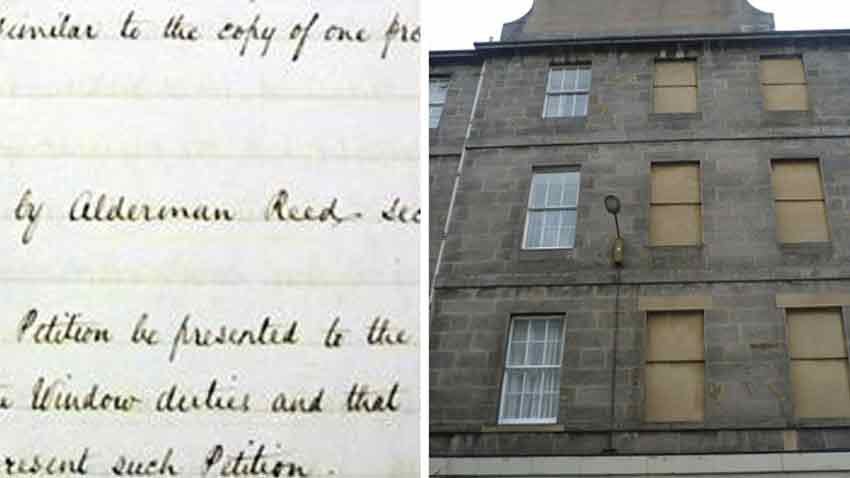 similar to the copy of one pro
by Alderman Reed sec
Petition be presented to the
Window duties and that
resent such Petition.